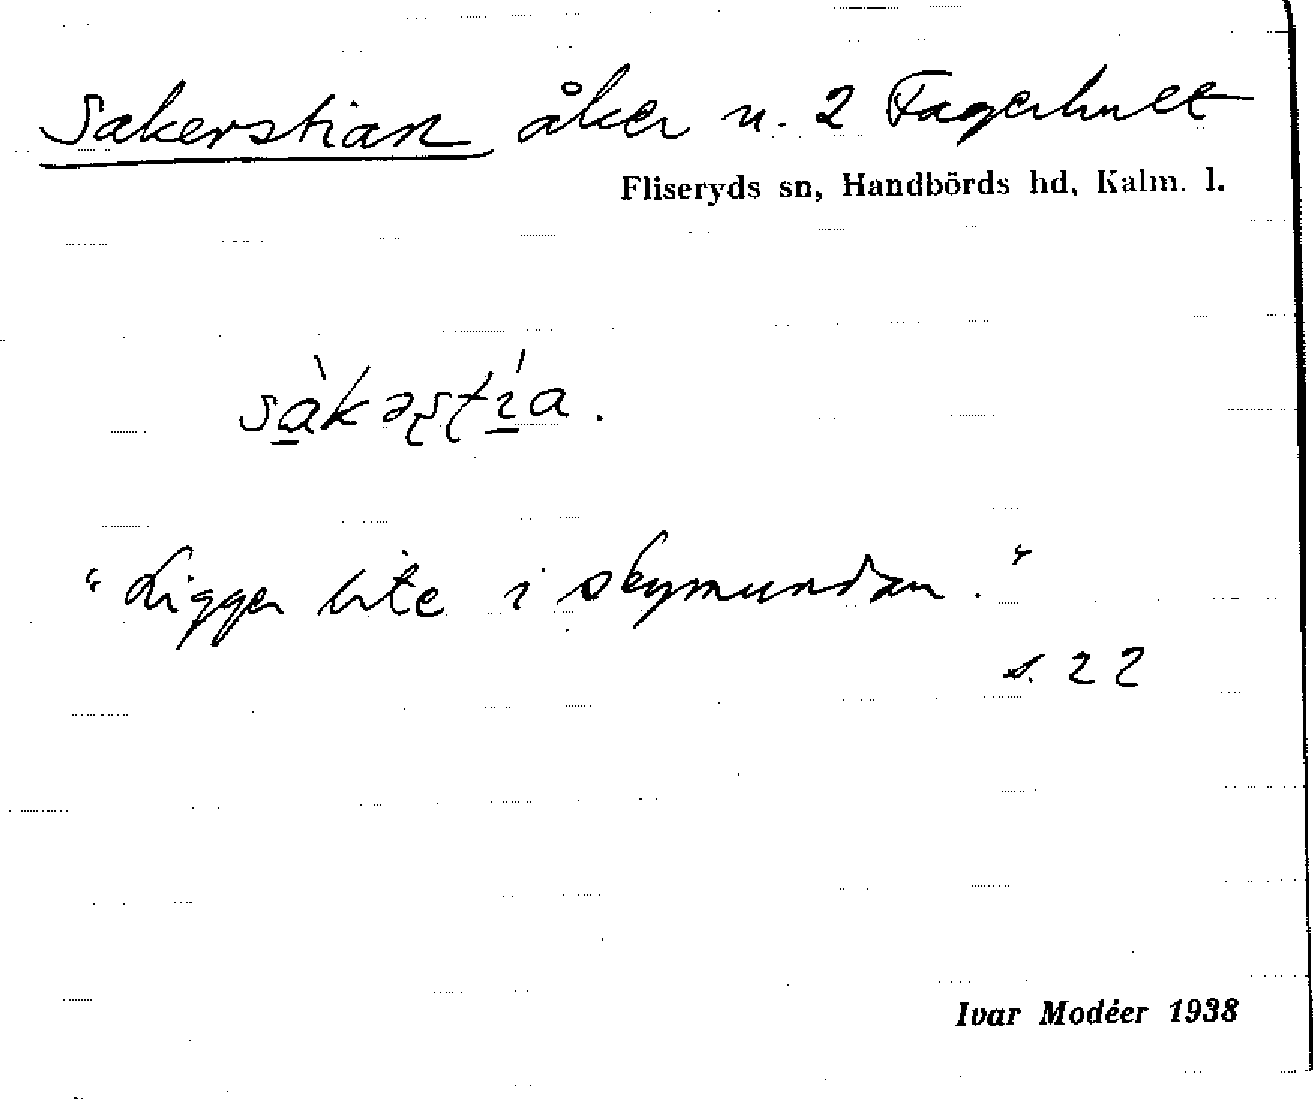 Sakerstian åker u. 2 Fagerhult
Fliseryds sn, Handbörds hd, Kalm. l.
sàkəʂʈía.
"Ligger lite i skymundan."
s. 22
Ivar Modéer 1938